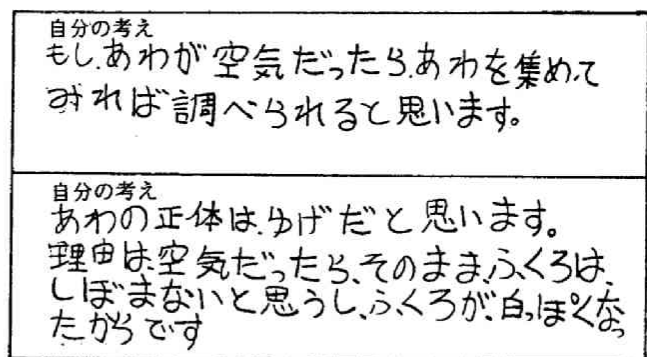 自分の考え
もし、あわが空気だったら、あわを集めて
みれば調べられると思います。
自分の考え
あわの正体は、ゆげだと思います。
理由は、空気だったら、そのまま、ふくろは、
しぼまないと思うし、ふくろが、白っぽくなっ
たからです